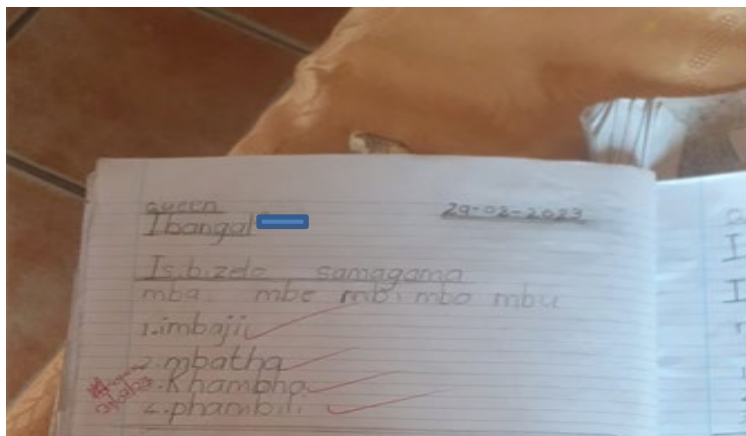 queen
Ibangal
29-03-2023
Isibizelo samagama
mba mbe mbi mbo mbu
1.imbaji
2.mbatha
3.Khambha
4.phambili